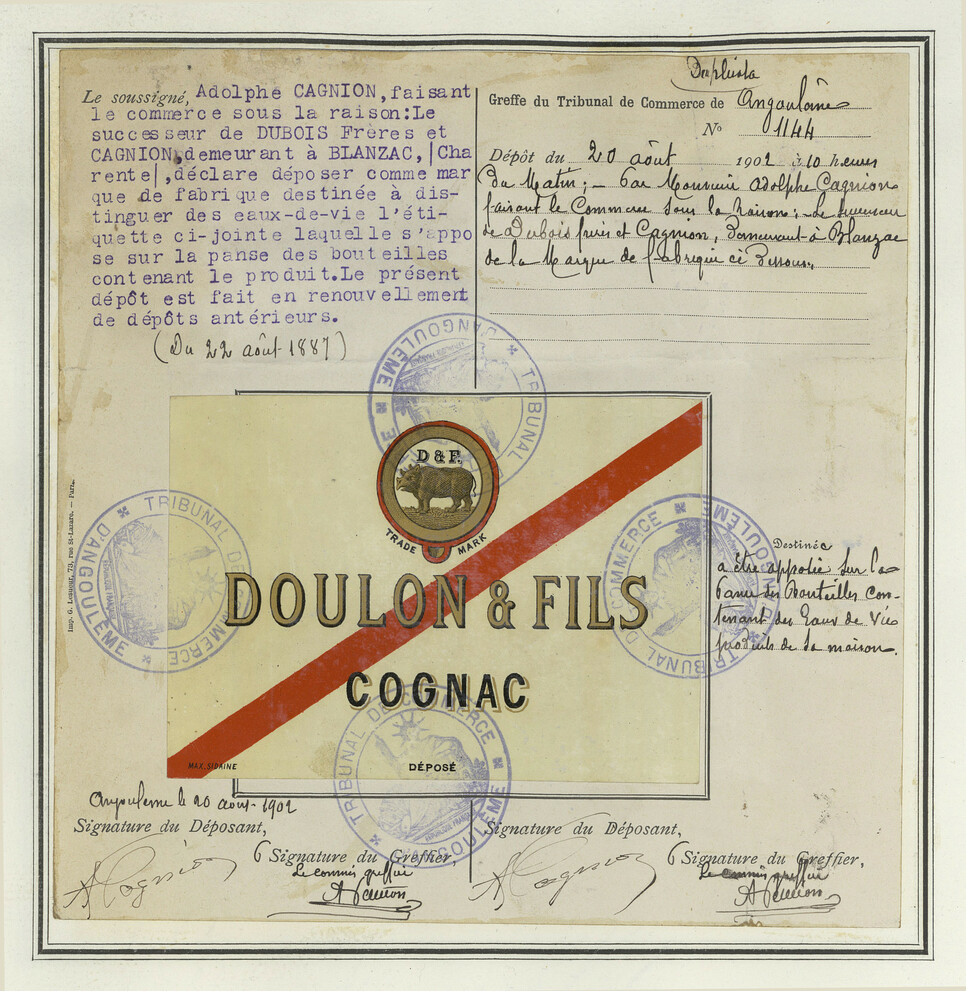 Le soussigné, Adolphe CAGNION, faisant
le commerce sous la raison:Le
successeur de DUBOIS Frères et
CAGNION,demeurant à BLANZAC, |Cha
rente|,déclare déposer comme mar
que de fabrique destinée à dis-
tinguer des eaux-de-vie l'éti-
quette ci-jointe laquelle s'appo
se sur la panse des bouteilles
contenant le produit.Le présent
dépôt est fait en renouvellement
de dépôts antérieurs.
(Du 22 août 1887)
Duplicata
Greffe du Tribunal de Commerce de Angoulême
N° 1144
Dépôt du 20 août 1902 à 10 heures
du Matin; – Par Monsieur Adolphe Cagnion
faisant le Commerce sous la Raison: Le successeur
de Dubois frères et Cagnion, demeurant à Blanzac
de la Marque de fabrique ci Dessous.
TRIBUNAL DE COMMERCE D'ANGOULÊME
D.&F.
TRADE MARK
DOULON & FILS
COGNAC
MAX.SIDAINE
DÉPOSÉ
TRIBUNAL DE COMMERCE D'ANGOULÊME
TRIBUNAL DE COMMERCE D'ANGOULÊME
TRIBUNAL DE COMMERCE D'ANGOULÊME
RÉPUBLIQUE FRANÇAISE
Destinée
à être apposée sur la
Panse des Bouteilles con-
tenant des Eaux de Vie
produits de sa maison.
Imp. G. Lequeur, 73, rue St-Lazare. — Paris.
Angoulême le 20 août 1902
Signature du Déposant,
A Cagnion
Signature du Greffier,
Le commis greffier
Signature du Déposant,
A Cagnion
Signature du Greffier,
Le commis greffier